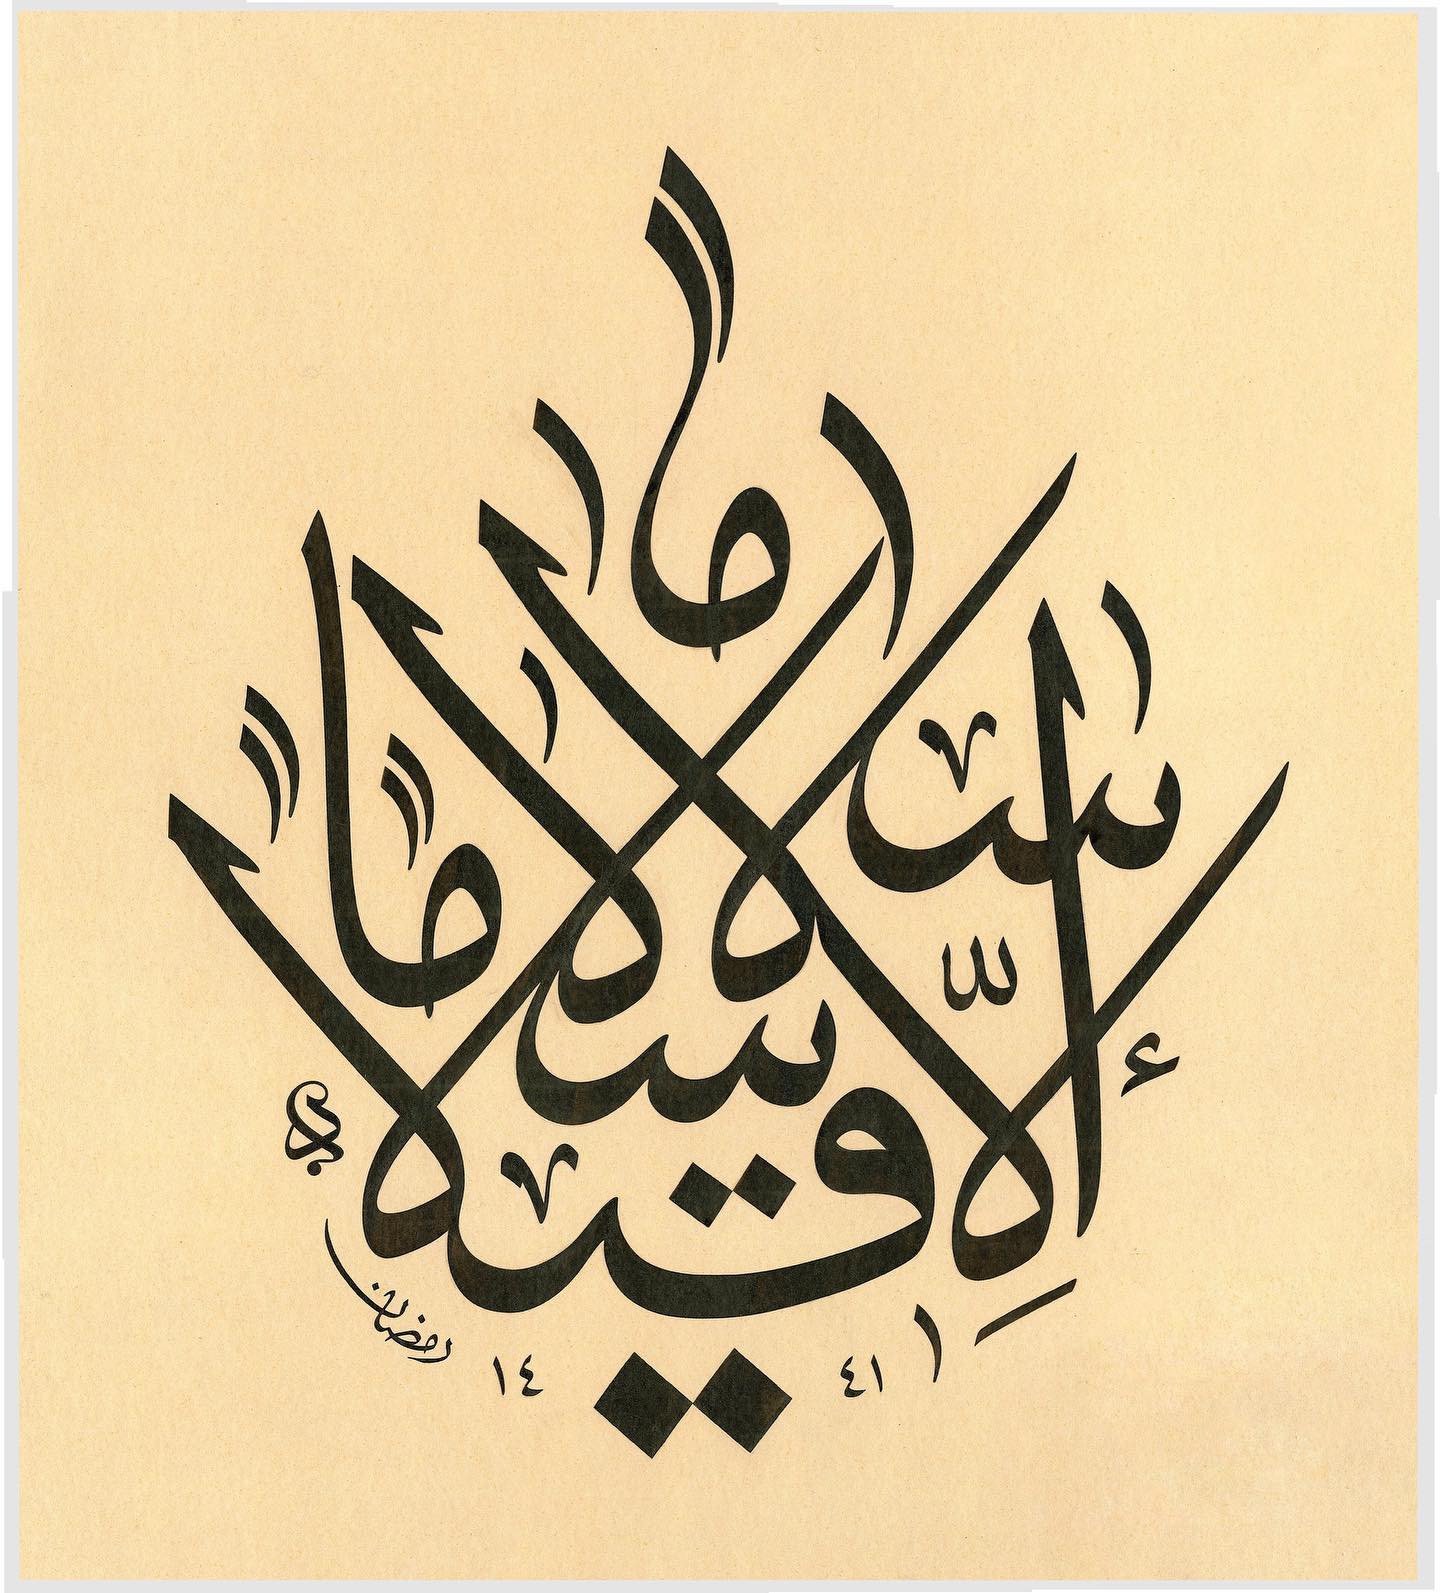 إِلَّا قِيلًا سَلَامًا سَلَامًا
رمضان
١٤٤١